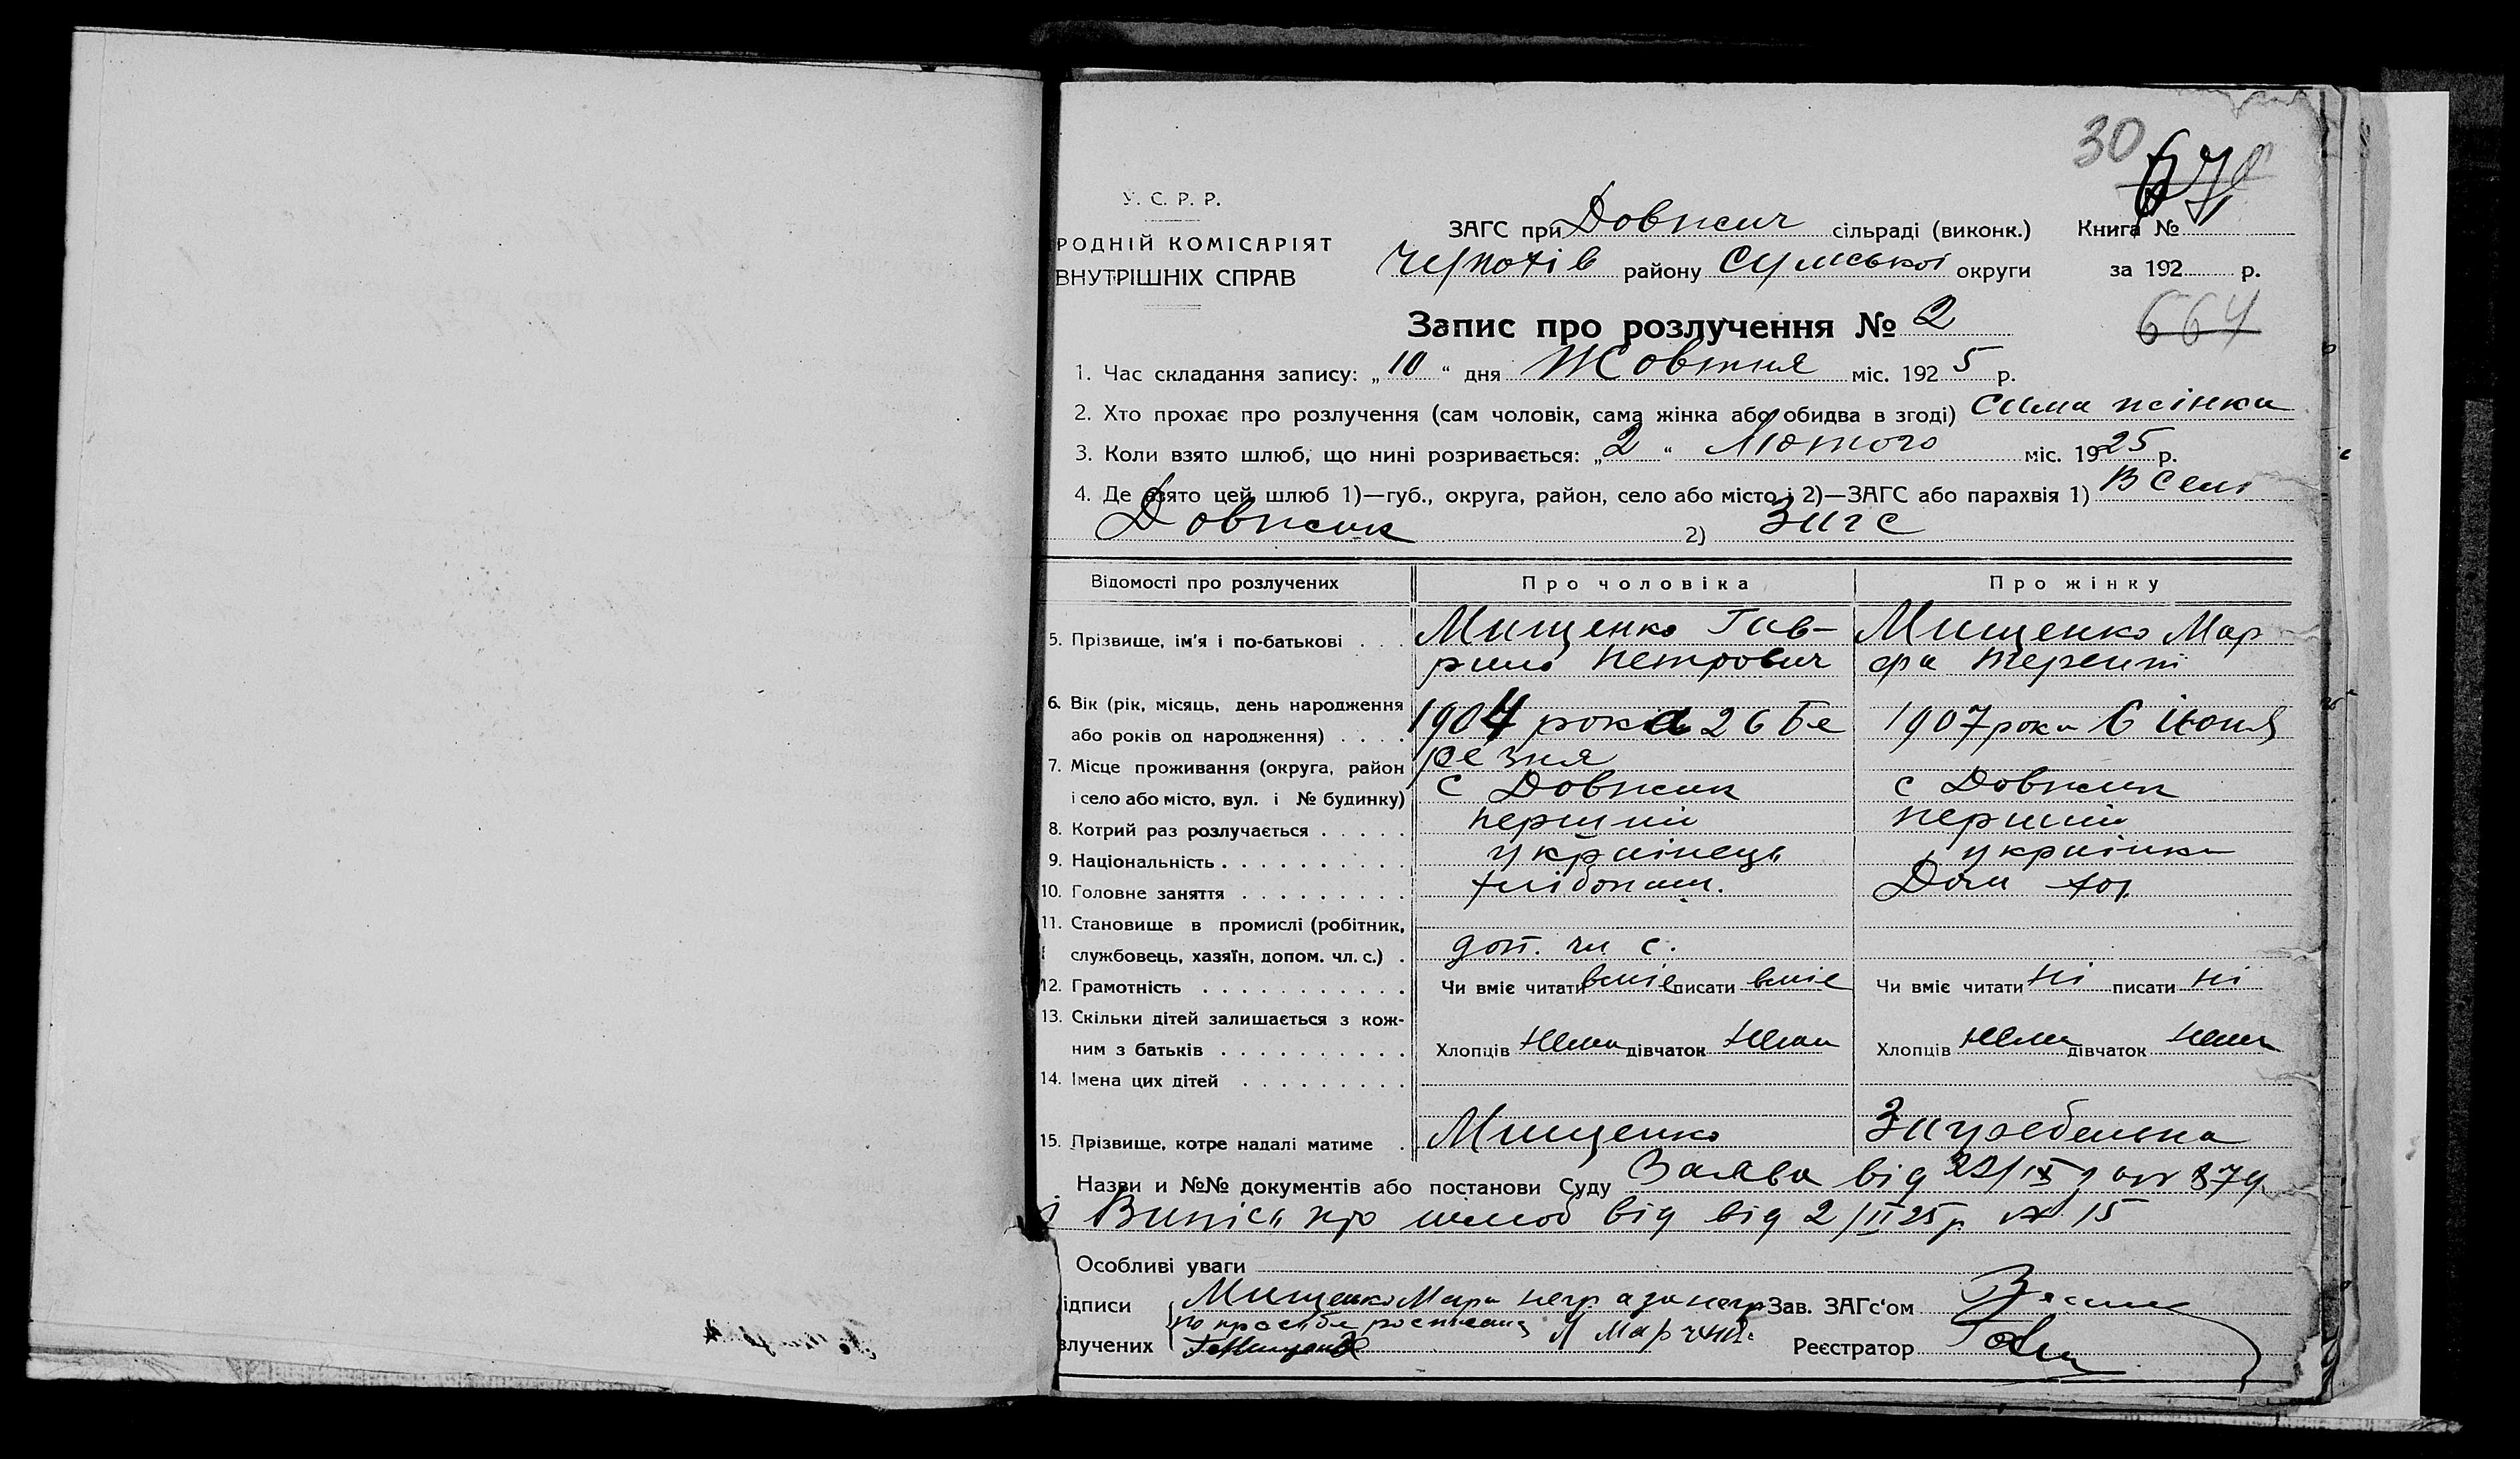 30
671
У. С. Р. Р.
РОДНІЙ КОМІСАРІЯТ
ВНУТРІШНІХ СПРАВ
ЗАГС при Довжич сільраді (виконк.) Книга №
Чупахів району Сумської округи за 192 р.
664
Запис про розлучення № 2
1. Час складання запису: „10“ дня Жовтня міс. 1925 р.
2. Хто прохає про розлучення (сам чоловік, сама жінка або обидва в згоді) Сама жінка
3. Коли взято шлюб, що нині розривається: „2“ Лютого міс. 1925 р.
4. Де взято цей шлюб 1)—губ., округа, район, село або місто і 2)—ЗАГС або парахвія 1) В Селі
Довжик 2) Загс
Відомості про розлучених Про чоловіка Про жінку
5. Прізвище, ім'я і по-батькові . . . Мищенко Гав- Мищенко Мар
рило Петрович фа Терент
6. Вік (рік, місяць, день народження
або років од народження) . . . . 1904 рока 26 Бе 1907 рока 6 Июня
резня
7. Місце проживання (округа, район
і село або місто, вул. і № будинку) с Довжик с Довжик
8. Котрий раз розлучається . . . . . перший перший
9. Національність . . . . . . . . . . українець українка
10. Головне заняття . . . . . . . . . хлібопаш. Дом хоз
11. Становище в промислі (робітник,
службовець, хазяїн, допом. чл. с.) . доп. чл с.
12. Грамотність . . . . . . . . . . . Чи вміє читати вміє писати вміє Чи вміє читати ні писати ні
13. Скільки дітей залишається з кож-
ним з батьків . . . . . . . . . . Хлопців нема дівчаток нема Хлопців нема дівчаток нема
14. Імена цих дітей . . . . . . . . .
15. Прізвище, котре надалі матиме . Мищенко Загребельна
Назви и №№ документів або постанови Суду Заява від
Випісь про шлюб від від 2/II 25р № 15
Особливі уваги
ідписи Мищенко Мара негр а за негр Зав. ЗАГс'ом
по просьбе росписався
злучених Реєстратор